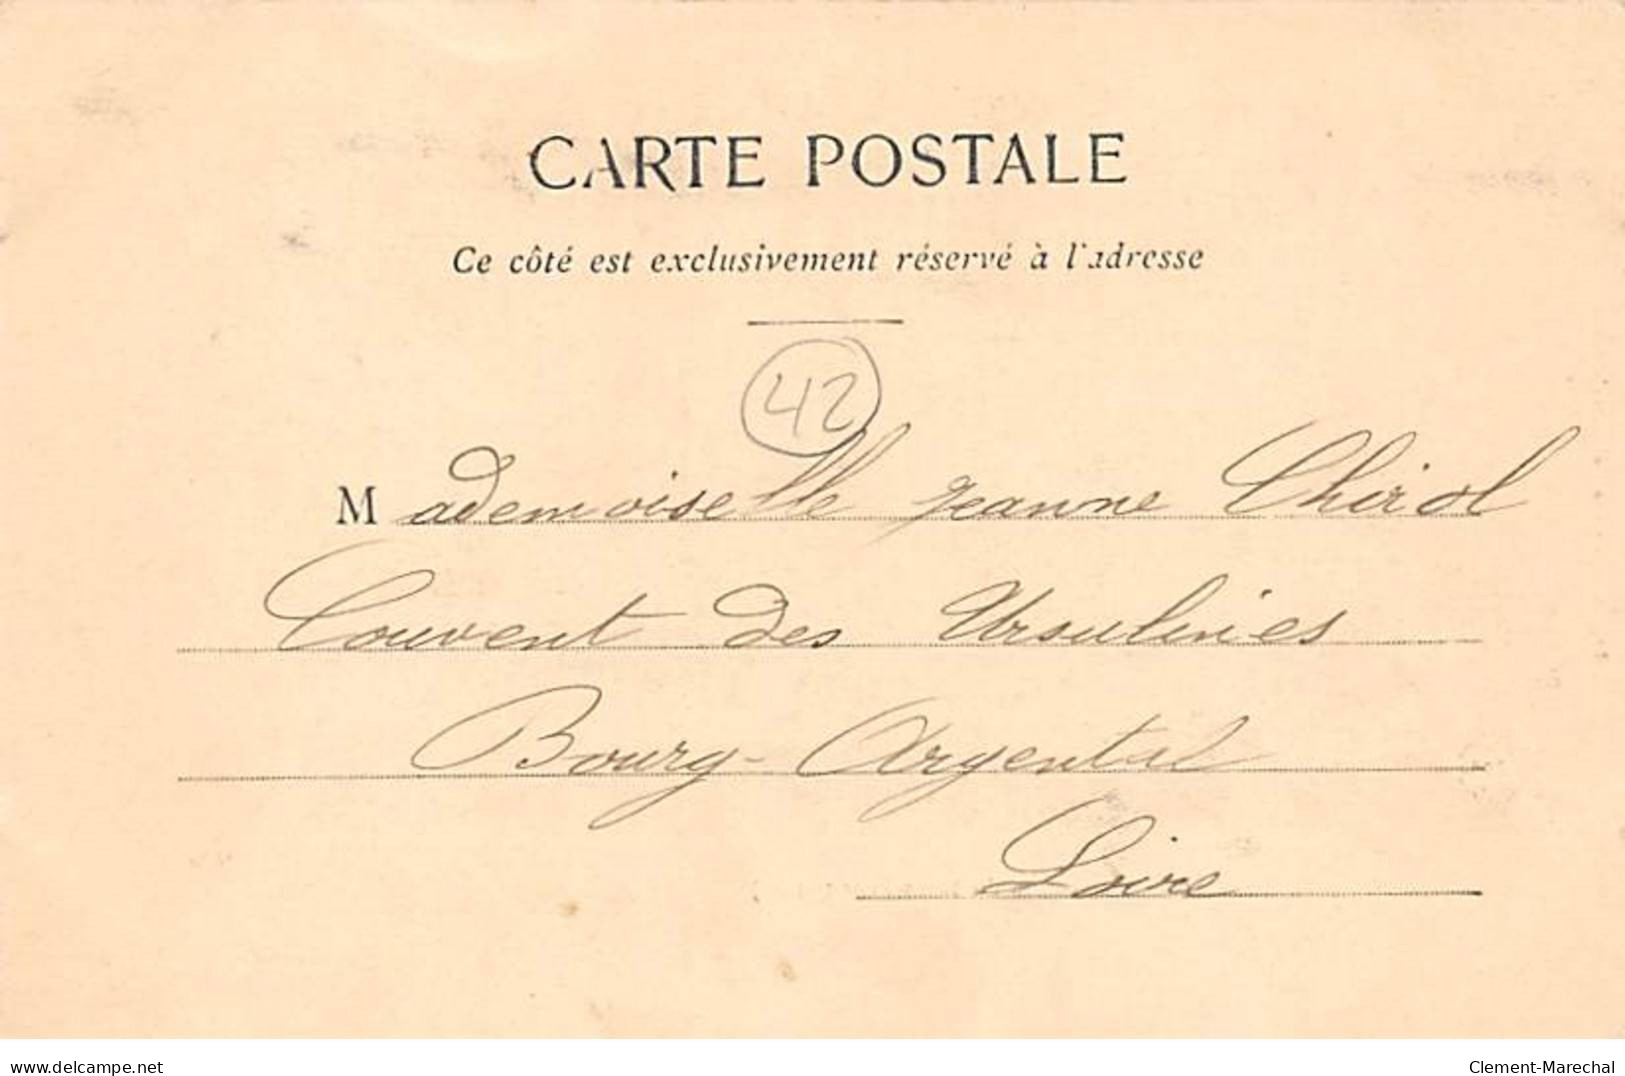 CARTE POSTALE
Ce côté est exclusivement réservé à l'adresse
42
Mademoiselle Jeanne Chirol
Couvent des Ursulines
Bourg-Argental
Loire
delcampe.net
Clement-Marechal